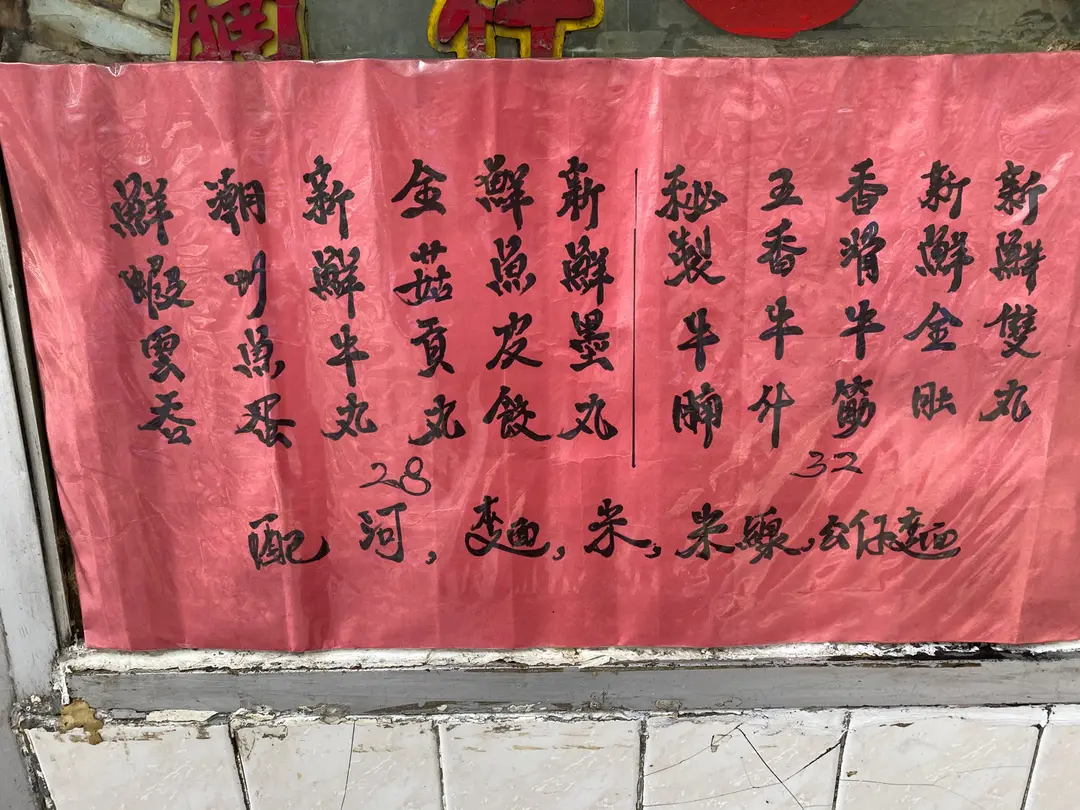 新鮮雙丸
新鮮金肚
香滑牛筋
五香牛什
秘製牛腩
32
新鮮墨丸
鮮魚皮餃
金菇貢丸
新鮮牛丸
潮州魚蛋
鮮蝦雲吞
28
配河,麵,米,米線,公仔麵